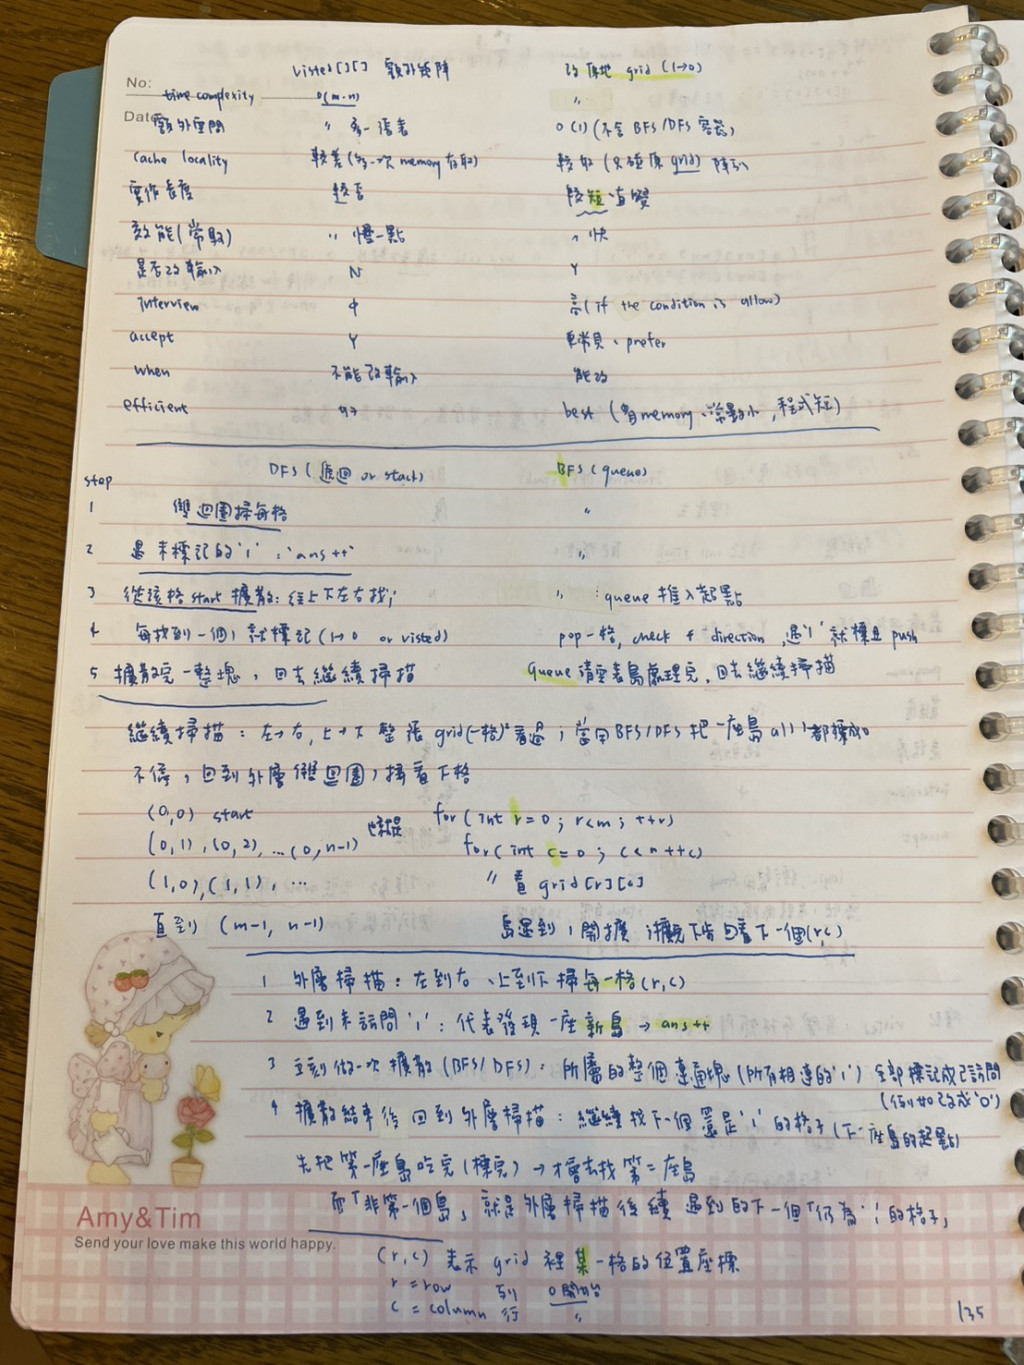 visted[][] 額外矩陣 改原地 grid (1→0)
No:
time complexity O(m·n) "
Date
額外空間 " 多一張表 O(1)(不含 BFS/DFS 容器)
cache locality 較差(多一次 memory 存取) 較好(只碰原 grid) 陣列
實作長度 較長 較短 直覺
效能(常數) " 慢一點 " 快
是否改輸入 N Y
interview 中 高(if the condition is allow)
accept Y 更常見、prefer
when 不能改輸入 能改
efficient 好 best (省memory、常數小,程式短)
DFS(遞迴 or stack) BFS(queue)
step
1 雙迴圈掃每格 "
2 遇未標記的'1':ans++ "
3 從該格start 擴散:往上下左右找1 " :queue 推入起點
4 每找到一個1就標記(1→0 or visted) pop一格, check 4 direction,遇'1'就標且push
5 擴散完一整塊,回去繼續掃描 queue 清空表島處理完,回去繼續掃描
繼續掃描:左→右,上→下 整張 grid(一格)看過;當用BFS/DFS 把一座島 all 1都標成0
不停,回到外層雙迴圈,掃看下格
(0,0) start for(int r=0; r<m; ++r)
(0,1),(0,2),...(0,n-1) 也就是 for(int c=0; c<n ++c)
(1,0),(1,1),... " 看 grid[r][c]
直到 (m-1, n-1) 島遇到1開擴 下一個(r,c)
1 外層掃描:左到右、上到下掃每一格(r,c)
2 遇到未訪問'1':代表發現一座新島 → ans++
3 立刻做一次擴散(BFS/DFS):所屬的整個連通塊(所有相連的'1')全部標記成已訪問
(例如改成'0')
4 擴散結束後 回到外層掃描:繼續找下一個還是'1'的格子(下一座島的起點)
先把第一座島吃完(標完)→才會去找第二座島
而「非第一個島」就是外層掃描後續遇到的下一個「仍為'1'的格子」
Amy&Tim
Send your love make this world happy.
(r,c) 表示 grid 裡某一格的位置座標
r = row 列 0開始
c = column 行 "
135